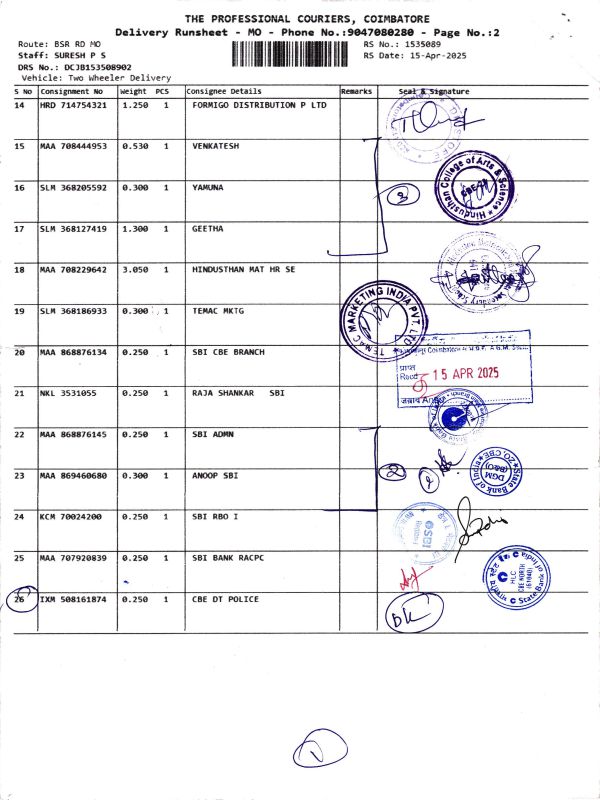 THE PROFESSIONAL COURIERS, COIMBATORE
Delivery Runsheet - MO - Phone No.:9047080280 - Page No.:2
Route: BSR RD MO
RS No.: 1535089
Staff: SURESH P S
RS Date: 15-Apr-2025
DRS No.: DCJB153508902
Vehicle: Two Wheeler Delivery
S No Consignment No Weight PCS Consignee Details Remarks Seal & Signature
14 HRD 714754321 1.250 1 FORMIGO DISTRIBUTION P LTD
15 MAA 708444953 0.530 1 VENKATESH
16 SLM 368205592 0.300 1 YAMUNA
3
Hindusthan College of Arts & Science
17 SLM 368127419 1.300 1 GEETHA
18 MAA 708229642 3.050 1 HINDUSTHAN MAT HR SE
19 SLM 368186933 0.300 1 TEMAC MKTG
TEMAC MARKETING INDIA PVT. LTD
20 MAA 868876134 0.250 1 SBI CBE BRANCH
प्राप्त
Recd
15 APR 2025
21 NKL 3531055 0.250 1 RAJA SHANKAR SBI
22 MAA 868876145 0.250 1 SBI ADMN
23 MAA 869460680 0.300 1 ANOOP SBI
2
State Bank of India
DGM
(B&O)
ZO, CBE
24 KCM 70024200 0.250 1 SBI RBO I
SBI
25 MAA 707920839 0.250 1 SBI BANK RACPC
HLC
CBE NORTH
(61040)
State Bank of India
26 IXM 508161874 0.250 1 CBE DT POLICE
1